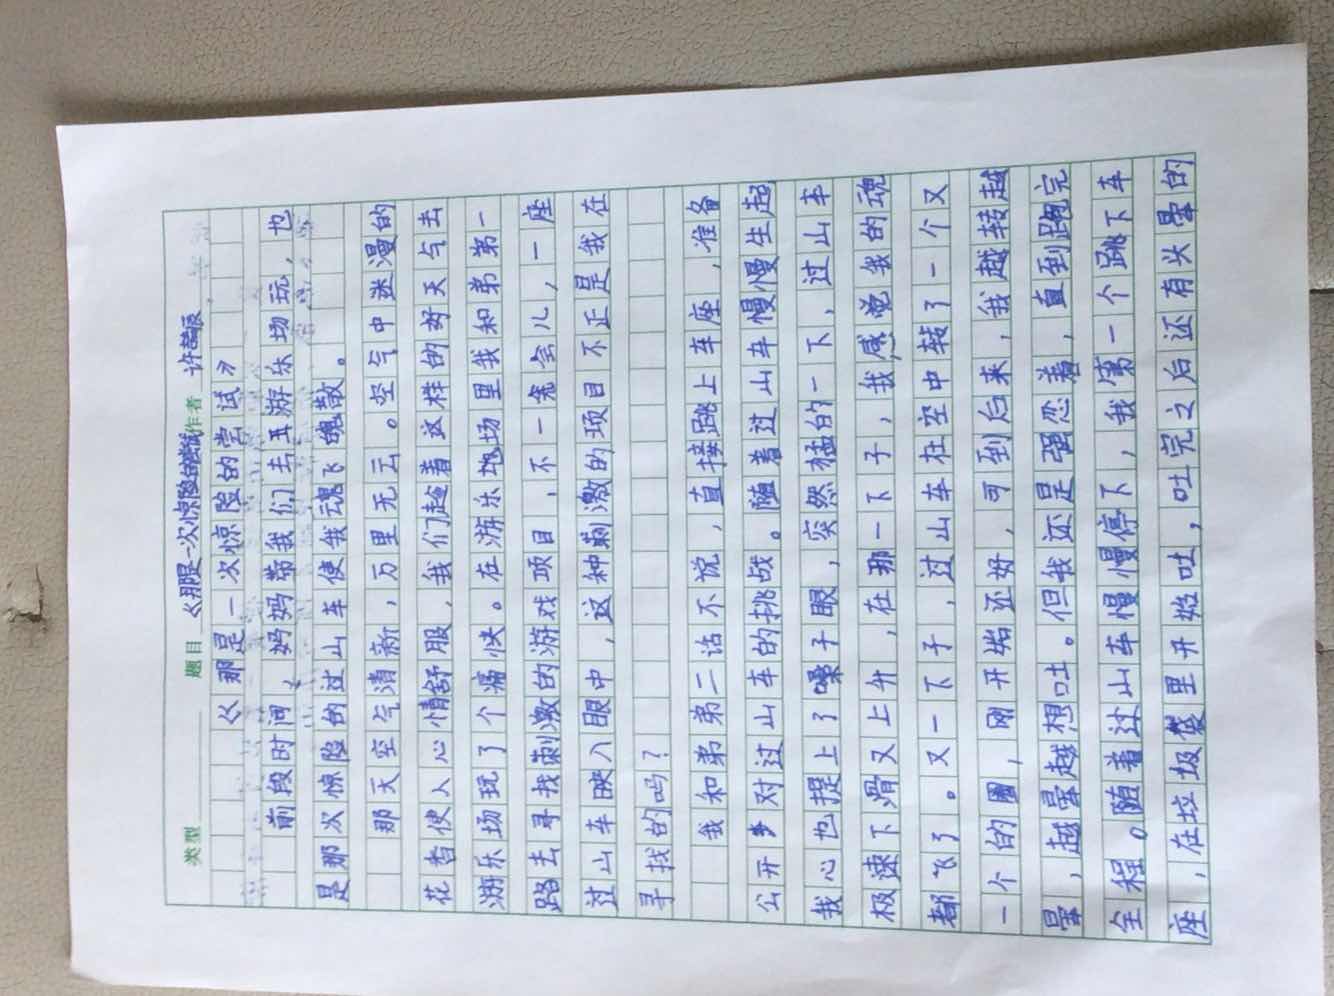 类型 题目《那是一次惊险的尝试》作者 许喆辰
《那是一次惊险的尝试》
前段时间，妈妈带我们去玉游乐场玩，也
是那次惊险的过山车使我魂飞魄散。
那天空气清新，万里无云。空气中迷漫的
花香使人心情舒服，我们趁着这样的好天气去
游乐场玩了个痛快。在游乐场里我和弟弟第一
路去寻找刺激的游戏项目，不一会儿，一座
过山车映入眼中，这种刺激的项目不正是我在
寻找的吗？
我和弟弟二话不说，直接跳上车座，准备
公开对过山车的挑战。随着过山车慢慢生起
我心也提上了嗓子眼，突然猛的一下，过山车
极速下滑又上升，在那一下子，我感觉我的魂
都飞了。又一下子，过山车在空中转了一个又
一个的圈，刚开始还好，可到后来，我越转越
晕，越晕越想吐。但我还是强忍着，直到跑完
全程。随着过山车慢慢停下，我第一个跳下车
座，在垃圾袋里开始吐，吐完之后还有头晕的